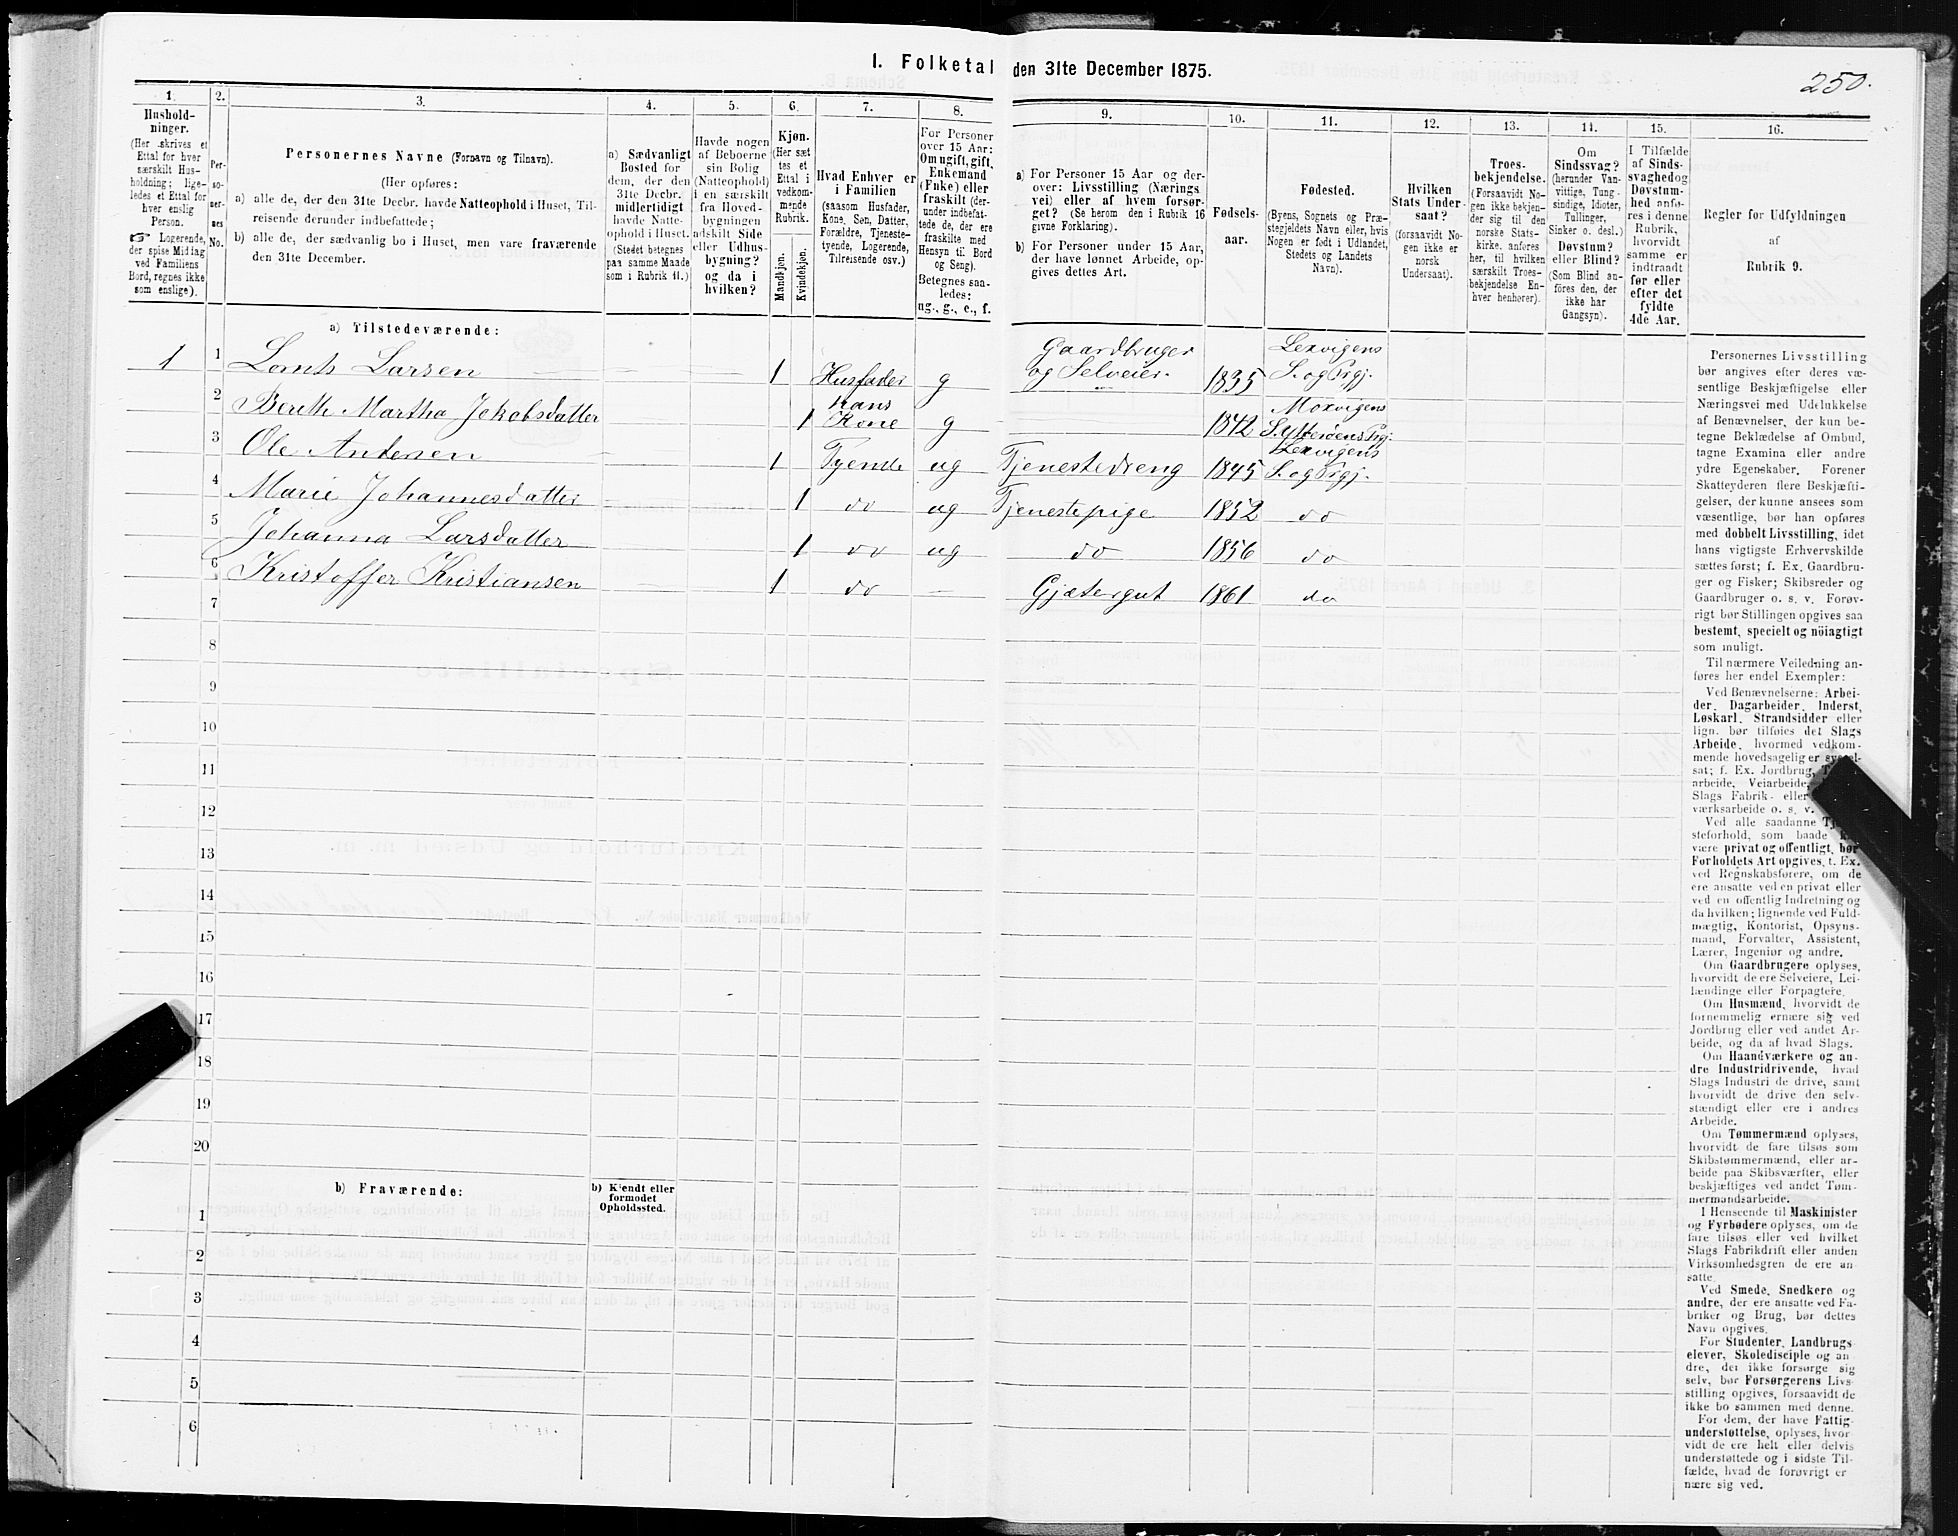 I. Folketal den 31te December 1875.
250.
1.
2.
3.
4.
5.
6.
7.
8.
9.
10.
11.
12.
13.
14.
15.
16.
Hushold-
ninger.
(Her skrives et
Ettal for hver
særskilt Hus-
holdning; lige-
ledes et Ettal for
hver enslig
Person.
Logerende,
der spise Middag
ved Familiens
Bord, regnes ikke
som enslige).
Per-
so-
ner-
nes
No.
Personernes Navne (Fornavn og Tilnavn).
(Her opføres:
a) alle de, der den 31te Decbr. havde Natteophold i Huset, Til-
reisende derunder indbefattede;
b) alle de, der sædvanlig bo i Huset, men vare fraværende
den 31te December.
a) Sædvanligt
Bosted for
dem, der den
31te Decbr.
midlertidigt
havde Natte-
ophold i Huset.
(Stedet betegnes
paa samme Maade
som i Rubrik 11.)
Havde nogen
af Beboerne
sin Bolig
(Natteophold)
i en særskilt
fra Hoved-
bygningen
adskilt Side
eller Udhus-
bygning?
og da i
hvilken?
Kjøn.
(Her sæt
tes et
Ettal i
vedkom-
mende
Rubrik.
Mandkjøn.
Kvindekjøn.
Hvad Enhver er
i Familien
(saasom Husfader,
Kone, Søn, Datter,
Forældre, Tjeneste-
tyende, Logerende,
Tilreisende osv.)
For Personer
over 15 Aar:
Om ugift, gift,
Enkemand
(Enke) eller
fraskilt (der-
under indbefat-
tede de, der ere
fraskilte med
Hensyn til Bord
og Seng).
Betegnes saa-
ledes:
ug., g., e., f.
a) For Personer 15 Aar og der-
over: Livsstilling (Nærings
vei) eller af hvem forsør-
get? (Se herom den i Rubrik 16
givne Forklaring).
b) For Personer under 15 Aar,
der have lønnet Arbeide, op-
gives dettes Art.
Fødsels-
aar.
Fødested.
(Byens, Sognets og Præ-
stegjeldets Navn eller, hvis
Nogen er født i Udlandet,
Stedets og Landets
Navn).
Hvilken
Stats Under-
saat?
(forsaavidt No-
gen ikke er
norsk
Undersaat).
Troes-
bekjendelse.
(Forsaavidt No-
gen ikke bekjen-
der sig til den
norske Stats-
kirke, anføres
her, til hvilken
særskilt Troes-
bekjendelse En-
hver henhører).
Om
Sindssvag?
(herunder Van-
vittige, Tung-
sindige, Idioter,
Tullinger,
Sinker o. desl.)
Døvstum?
eller Blind?
(Som Blind an-
føres den, der
ikke har
Gangsyn).
I Tilfælde
af Sinds-
svaghed og
Døvstum-
hed anfø-
res i denne
Rubrik,
hvorvidt
samme er
indtraadt
før eller
efter det
fyldte
4de Aar.
Regler for Udfyldningen
af
Rubrik 9.
a) Tilstedeværende:
1 1 Lornts Larsen 1 Husfader g Gaardbruger og Selveier. 1835 Lexvigens S. og Prgj.
2 Bereth Martha Jakobsdatter 1 hans Kone g 1842 Moxvigens S. Ytterøens Prgj.
3 Ole Andersen 1 Tyende ug Tjenestedreng 1845 Lexvigens S. og Prgj.
4 Marie Johannesdatter 1 do ug Tjenestepige 1852 do
5 Johanna Larsdatter 1 do ug do 1856 do
6 Kristoffer Kristiansen 1 do Gjætergut 1861 do
7
8
9
10
11
12
13
14
15
16
17
18
19
20
b) Fraværende:
b) Kjendt eller
formodet
Opholdssted.
1
2
3
4
5
6
Personernes Livsstilling
bør angives efter deres væ-
sentlige Beskjæftigelse eller
Næringsvei med Udelukkelse
af Benævnelser, der kun be-
tegne Beklædelse af Ombud,
tagne Examina eller andre
ydre Egenskaber. Forener
Skatteyderen flere Beskjæfti-
gelser, der kunne ansees som
væsentlige, bør han opføres
med dobbelt Livsstilling, idet
hans vigtigste Erhvervskilde
sættes først; f. Ex. Gaardbru-
ger og Fisker; Skibsreder og
Gaardbruger o. s. v. Forøv-
rigt bør Stillingen opgives saa
bestemt, specielt og nöiagtigt
som muligt.
Til nærmere Veiledning an-
føres her endel Exempler:
Ved Benævnelserne: Arbei-
der, Dagarbeider, Inderst,
Løskarl, Strandsidder eller
lign. bør tilføies det Slags
Arbeide, hvormed vedkom-
mende hovedsagelig er syssel-
sat; f. Ex. Jordbrug,
arbeide, Veiarbeide,
Slags Fabrik- eller
værksarbeide o. s. v.
Ved alle saadanne
steforhold, som baade
være privat og offentligt, bør
Forholdets Art opgives, t. Ex.
ved Regnskabsførere, om de
ere ansatte ved en privat eller
ved en offentlig Indretning og
da hvilken; lignende ved Fuld-
mægtig, Kontorist, Opsyns-
mand, Forvalter, Assistent,
Lærer, Ingeniør og andre.
Om Gaardbrugere oplyses,
hvorvidt de ere Selveiere, Lei-
lændinge eller Forpagtere.
Om Husmænd, hvorvidt de
fornemmelig ernære sig ved
Jordbrug eller ved andet Ar-
beide, og da af hvad Slags.
Om Haandværkere og an-
dre Industridrivende, hvad
Slags Industri de drive, samt
hvorvidt de drive den selv-
stændigt eller ere i andres
Arbeide.
Om Tømmermænd oplyses,
hvorvidt de fare tilsøs som
Skibstømmermænd, eller ar-
beide paa Skibsværfter, eller
beskjæftiges ved andet Tøm-
mermandsarbeide.
I Henseende til Maskinister
og Fyrbødere oplyses, om de
fare tilsøs eller ved hvilket
Slags Fabrikdrift eller anden
Virksomhedsgren de ere an-
satte.
Ved Smede, Snedkere og
andre, der ere ansatte ved Fa-
briker og Brug, bør dettes
Navn opgives.
For Studenter, Landbrugs-
elever, Skoledisciple og an
dre, der ikke forsørge sig
selv, bør Forsørgerens Livs-
stilling opgives, forsaavidt de
ikke bo sammen med denne.
For dem, der have Fattig-
understøttelse, oplyses, hvor-
vidt de ere helt eller delvis
understøttede og i sidste Til-
fælde, hvad de forøvrigt er
nære sig ved.